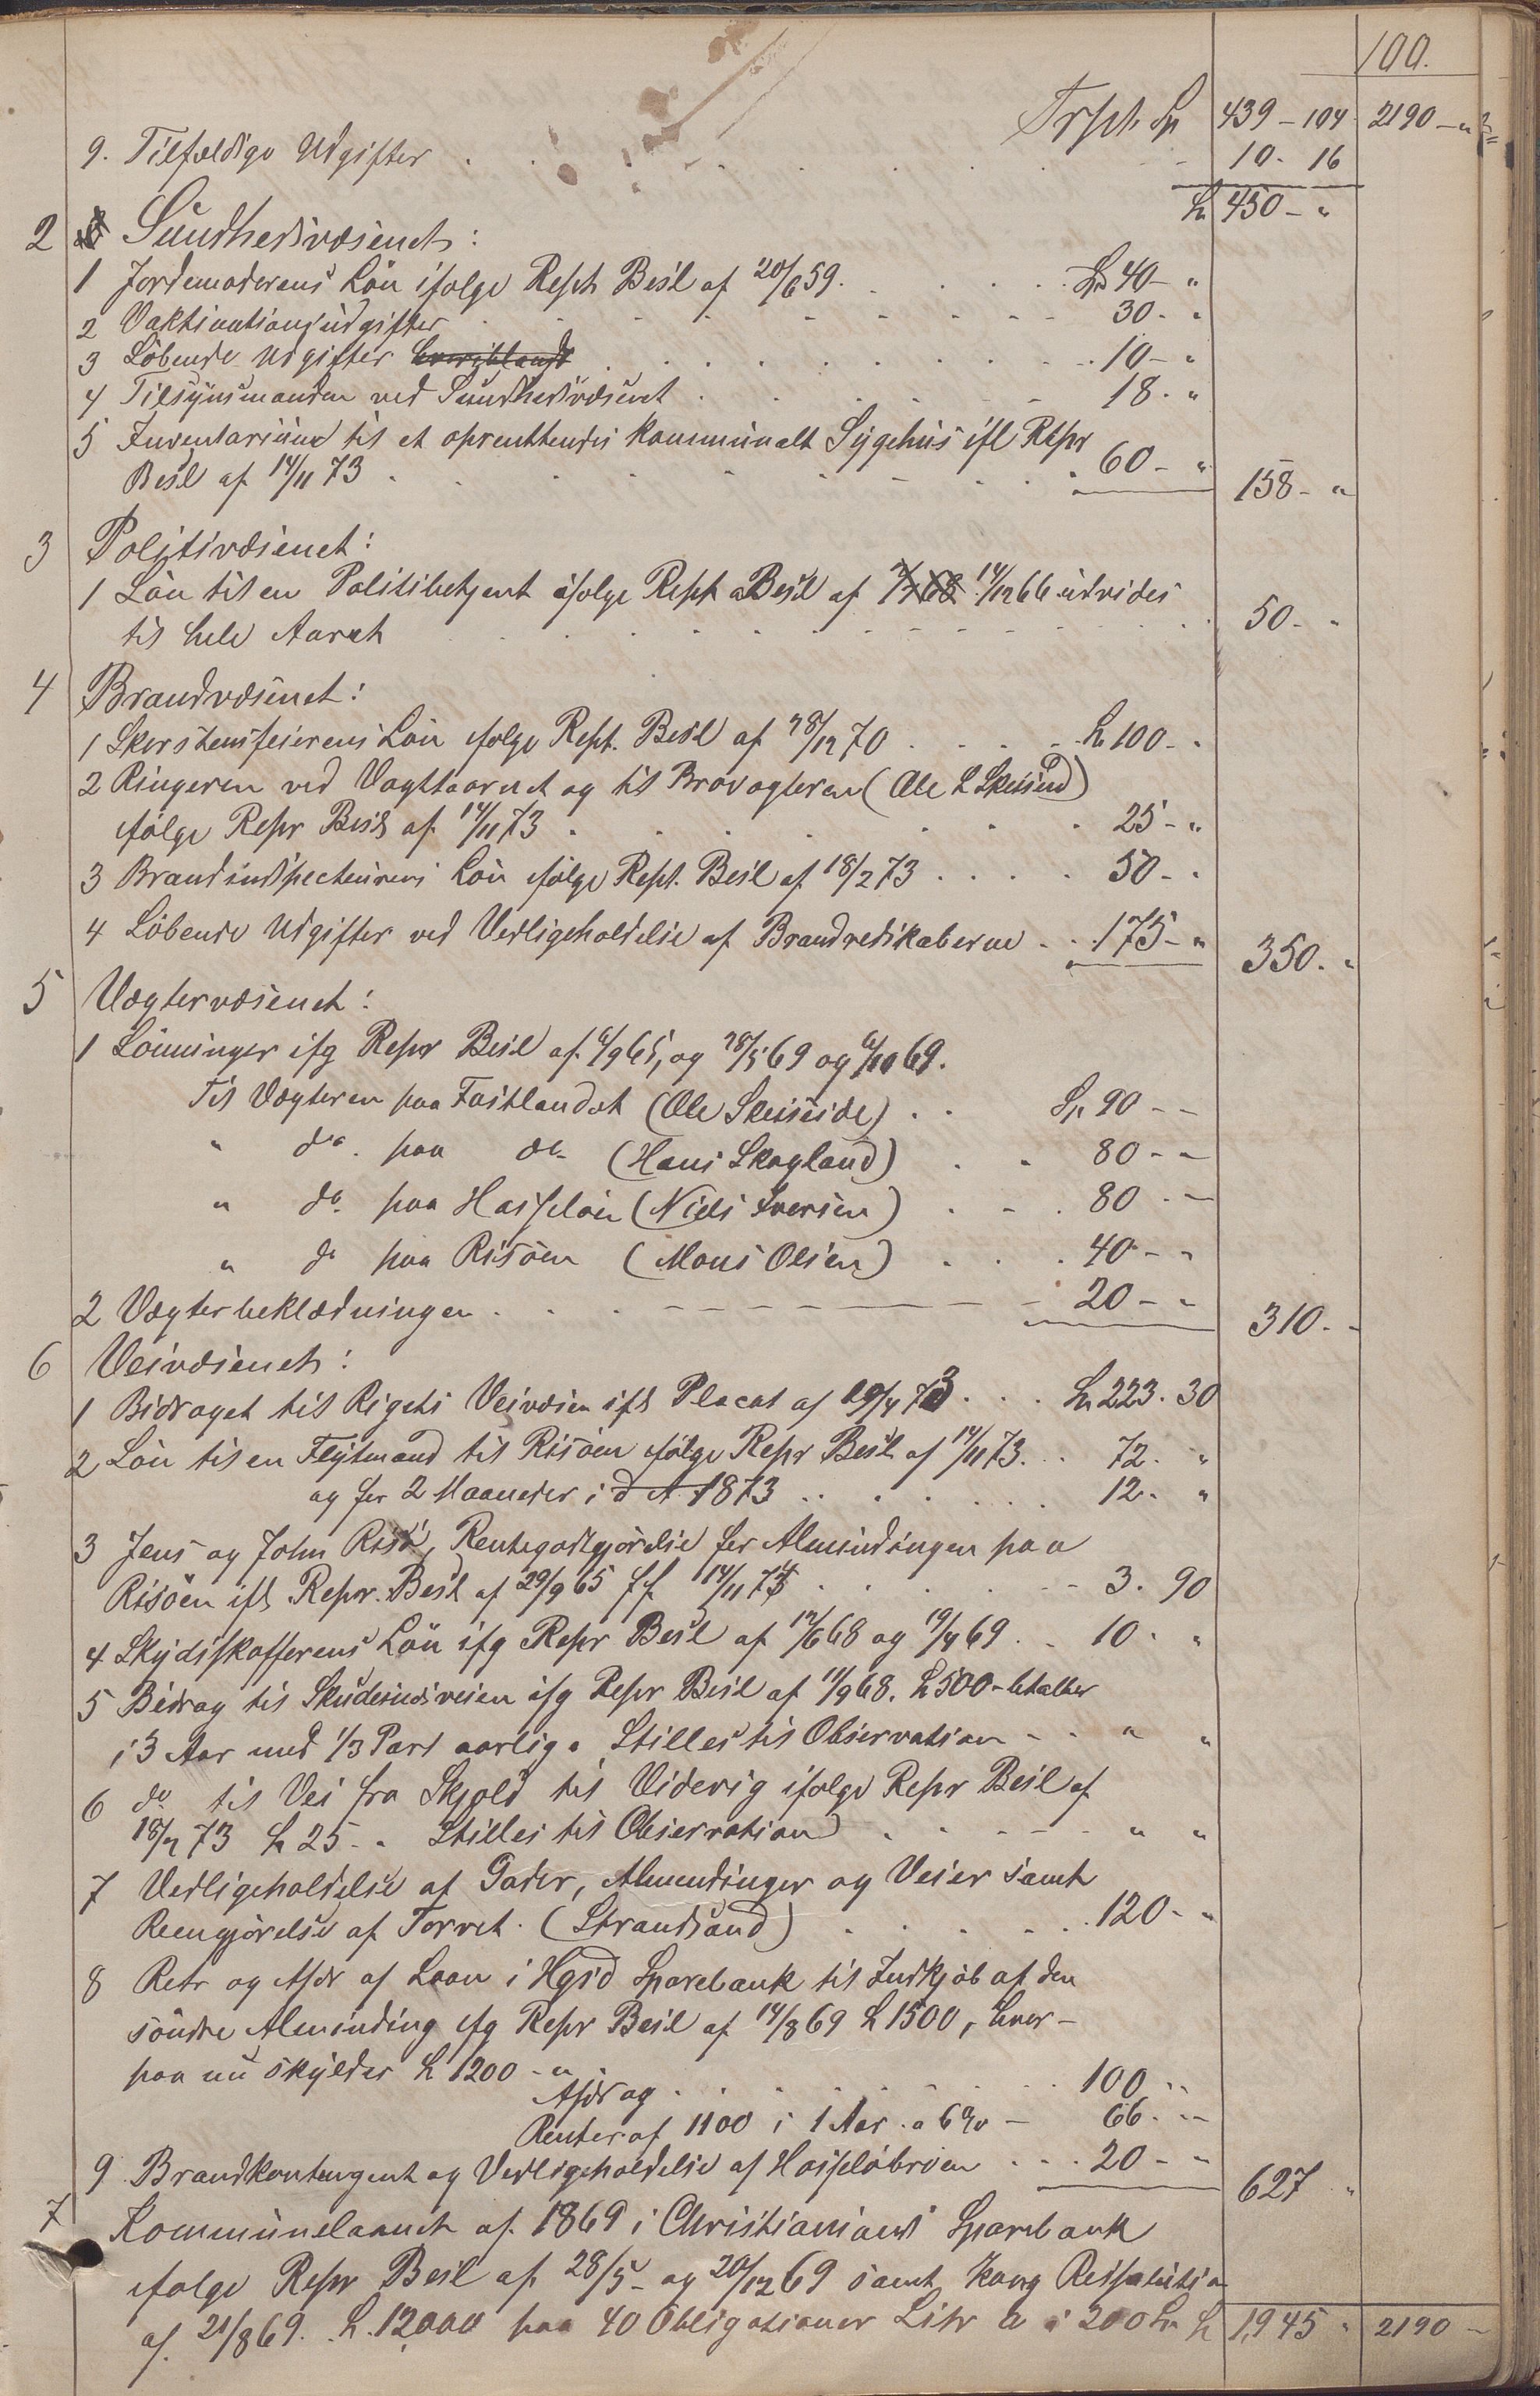 100.
Trspt. Sp 439 - 104 2190 - "
9. Tilfældige Udgifter . . . 10 - 16
Sp 450 - "
2 Sundhedsvæsenet:
1 Jordemoderens Lön ifölge Rept Besl af 20/6 59 . . . Sp 40 - "
2 Vaktinationsudgifter . . . 30 - "
3 Löbende Udgifter . . . 10 - "
4 Tilsynsmanden ved Sundhedsvæsenet . . . 18 - "
5 Inventarium til et oprettendes kommunalt Sygehus ifl Repr
Besl af 14/11 73 . . . 60 - " 158 - "
3 Politivæsenet:
1 Lön til en Politibetjent ifölge Rept Besl af 14/12 66 udvides
til hele Aaret . . . 50 - "
4 Brandvæsenet:
1 Skorstensfeierens Lön ifölge Rept. Besl af 28/12 70 . . . Sp 100 - "
2 Ringeren ved Vagttaarnet og til Brovogteren (Ole L Skeiseid)
ifölge Repr Besl af 14/11 73 . . . 25 - "
3 Brandinspecteurens Lön ifölge Rept. Besl af 18/2 73 . . . 50 - "
4 Löbende Udgifter ved Vedligeholdelse af Brandredskaberne . . 175 - " 350 - "
5 Vægtervæsenet:
1 Lönninger ifg Repr Besl af 6/9 65, og 28/5 69 og 6/10 69.
Til Vægteren paa Fastlandet (Ole Skeiseide) . . Sp 90 - -
" do. paa do. (Hans Skogland) . . 80 - -
" do. paa Hasselöen (Niels Iversen) . . . 80 - -
" do paa Risöen (Mons Olsen) . . . 40 - -
2 Vægterbeklædningen . . . 20 - - 310 - -
6 Veivæsenet:
1 Bidraget til Rigets Veivæsen ifl Placat af 29/4 73 . . . Sp 223. 30
2 Lön til en Fløtmand til Risöen ifölge Repr Besl af 14/11 73 . . 72 - "
og for 2 Maaneder i d A 1873 . . . 12 - "
3 Jens og John Risö, Rentegodtgjörelse for Almindingen paa
Risöen ifl Repr. Besl af 29/9 65 ff 14/11 73 . . . 3. 90
4 Skydsskafferens Lön ifg Repr Besl af 12/6 68 og 19/4 69 . . 10 - "
5 Bidrag til Skudesundsveien ifg Repr Besl af 11/9 68. Sp 500 - betaltes
i 3 Aar med 1/3 Part aarlig. Stilles til Observation - - " "
6 do til Vei fra Skjold til Viderig ifölge Repr Besl af
18/2 73 Sp 25 - " Stilles til Observation . . . " "
7 Vedligeholdelse af Gader, Almendinger og Veier samt
Reengjörelse af Torvet. (Strandsund) . . . 120 - "
8 Retr og Afdr af Laan i Hgsd Sparebank til Indkjöb af den
söndre Alminding ifg Repr Besl af 14/8 69 Sp 1500, hvor-
paa nu skyldes Sp 1200 - "
Afdrag . . . 100 - -
Renter af 1100 i 1 Aar a 6% - 66 - -
9 Brandkontengent og Vedligeholdelse af Hasselöbroen . . . 20 - - 627 "
7 Kommunelaanet af 1869 i Christiania Sparebank
ifölge Repr Besl af 28/5 - og 20/12 69 samt Kong Resolution
af 21/8 69. Sp. 12,000 paa 40 Obligationer Litr a à 300 Sp. Sp 1,945 " 2190 -